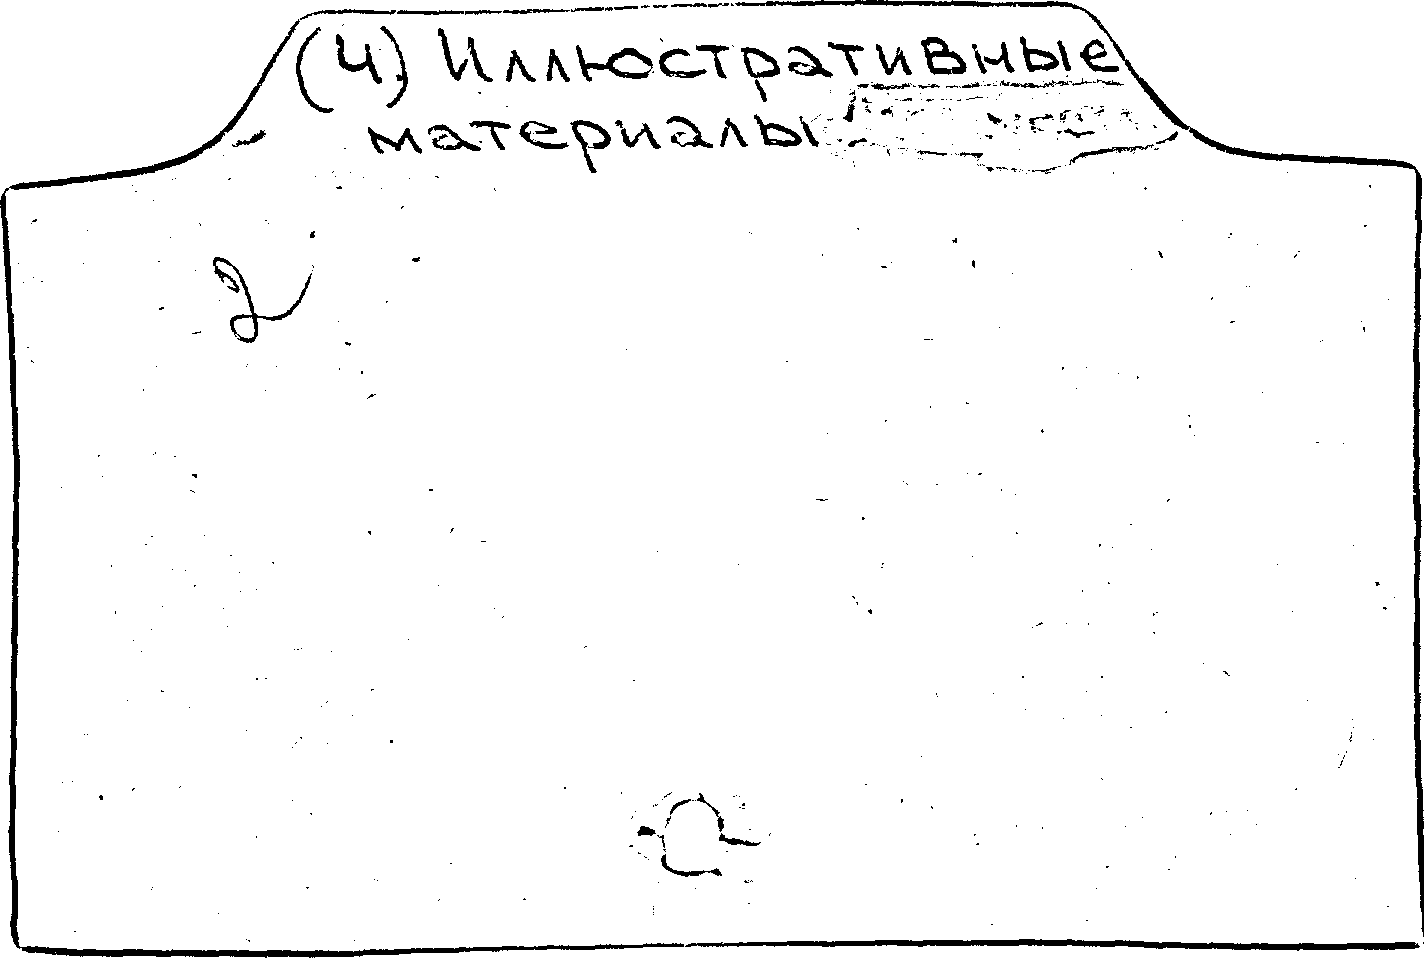 (4) Иллюстративные
материалы
2